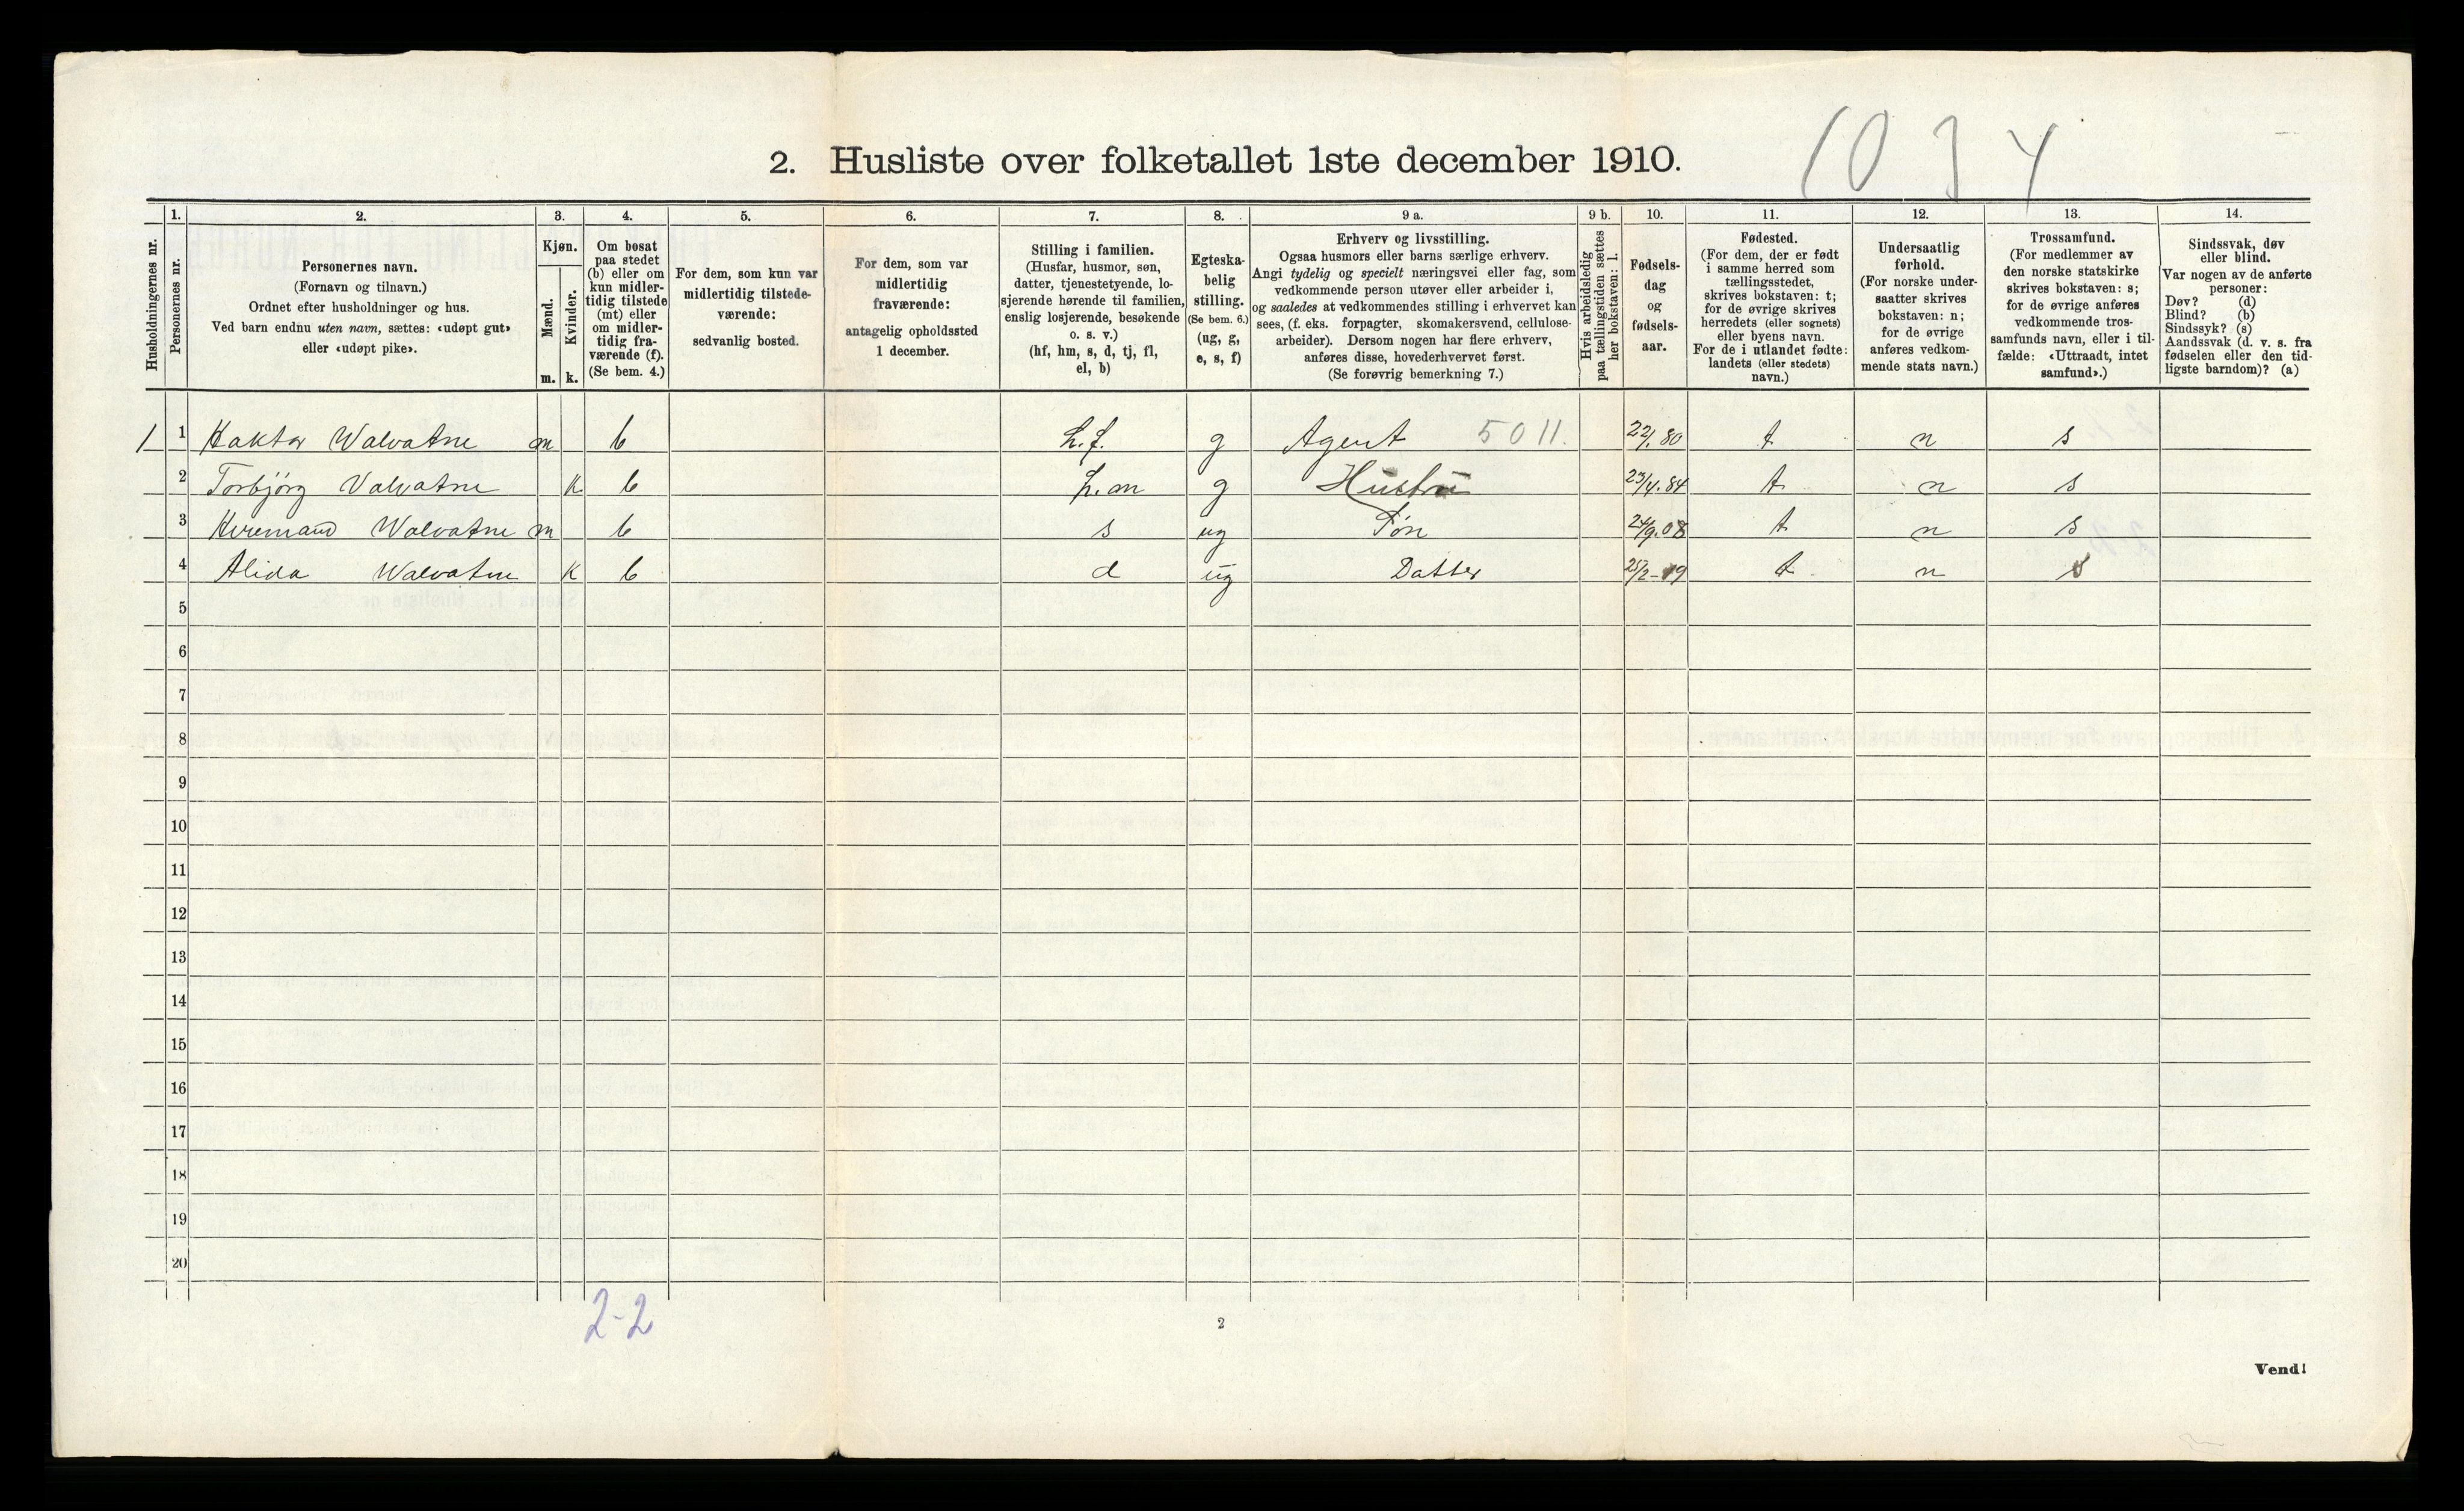 1034
2. Husliste over folketallet 1ste december 1910.
Husholdningernes nr.
1.
Personernes nr.
2.
Personernes navn.
(Fornavn og tilnavn.)
Ordnet efter husholdninger og hus.
Ved barn endnu uten navn, sættes: «udøpt gut»
eller «udøpt pike».
3.
Kjøn.
Mænd.
m.
Kvinder.
k.
4.
Om bosat
paa stedet
(b) eller om
kun midler-
tidig tilstede
(mt) eller
om midler-
tidig fra-
værende (f).
(Se bem. 4.)
5.
For dem, som kun var
midlertidig tilstede-
værende:
sedvanlig bosted.
6.
For dem, som var
midlertidig
fraværende:
antagelig opholdssted
1 december.
7.
Stilling i familien.
(Husfar, husmor, søn,
datter, tjenestetyende, lo-
sjerende hørende til familien,
enslig losjerende, besøkende
o. s. v.)
(hf, hm, s, d, tj, fl,
el, b)
8.
Egteska-
belig
stilling.
(Se bem. 6.)
(ug, g,
e, s, f)
9 a.
Erhverv og livsstilling.
Ogsaa husmors eller barns særlige erhverv.
Angi tydelig og specielt næringsvei eller fag, som
vedkommende person utøver eller arbeider i,
og saaledes at vedkommendes stilling i erhvervet kan
sees, (f. eks. forpagter, skomakersvend, cellulose-
arbeider). Dersom nogen har flere erhverv,
anføres disse, hovederhvervet først.
(Se forøvrig bemerkning 7.)
9 b.
Hvis arbeidsledig
paa tællingstiden sættes
her bokstaven: l.
10.
Fødsels-
dag
og
fødsels-
aar.
11.
Fødested.
(For dem, der er født
i samme herred som
tællingsstedet,
skrives bokstaven: t;
for de øvrige skrives
herredets (eller sognets)
eller byens navn.
For de i utlandet fødte:
landets (eller stedets)
navn.)
12.
Undersaatlig
forhold.
(For norske under-
saatter skrives
bokstaven: n;
for de øvrige
anføres vedkom-
mende stats navn.)
13.
Trossamfund.
(For medlemmer av
den norske statskirke
skrives bokstaven: s;
for de øvrige anføres
vedkommende tros-
samfunds navn, eller i til-
fælde: «Uttraadt, intet
samfund».)
14.
Sindssvak, døv
eller blind.
Var nogen av de anførte
personer:
Døv? (d)
Blind? (b)
Sindssyk? (s)
Aandssvak (d. v. s. fra
fødselen eller den tid-
ligste barndom)? (a)
1 1 Haktor Walvatne m b h.f. g Agent 5011. t n s
2 Torbjörg Valvatne k b h.m g Hustru 23/4.84 t n s
3 Walvatne m b s ug Søn 24/9.08 t n s
4 Alida Walvatne k b d ug Datter t n s
5
6
7
8
9
10
11
12
13
14
15
16
17
18
19
20
2-2
2
Vend!